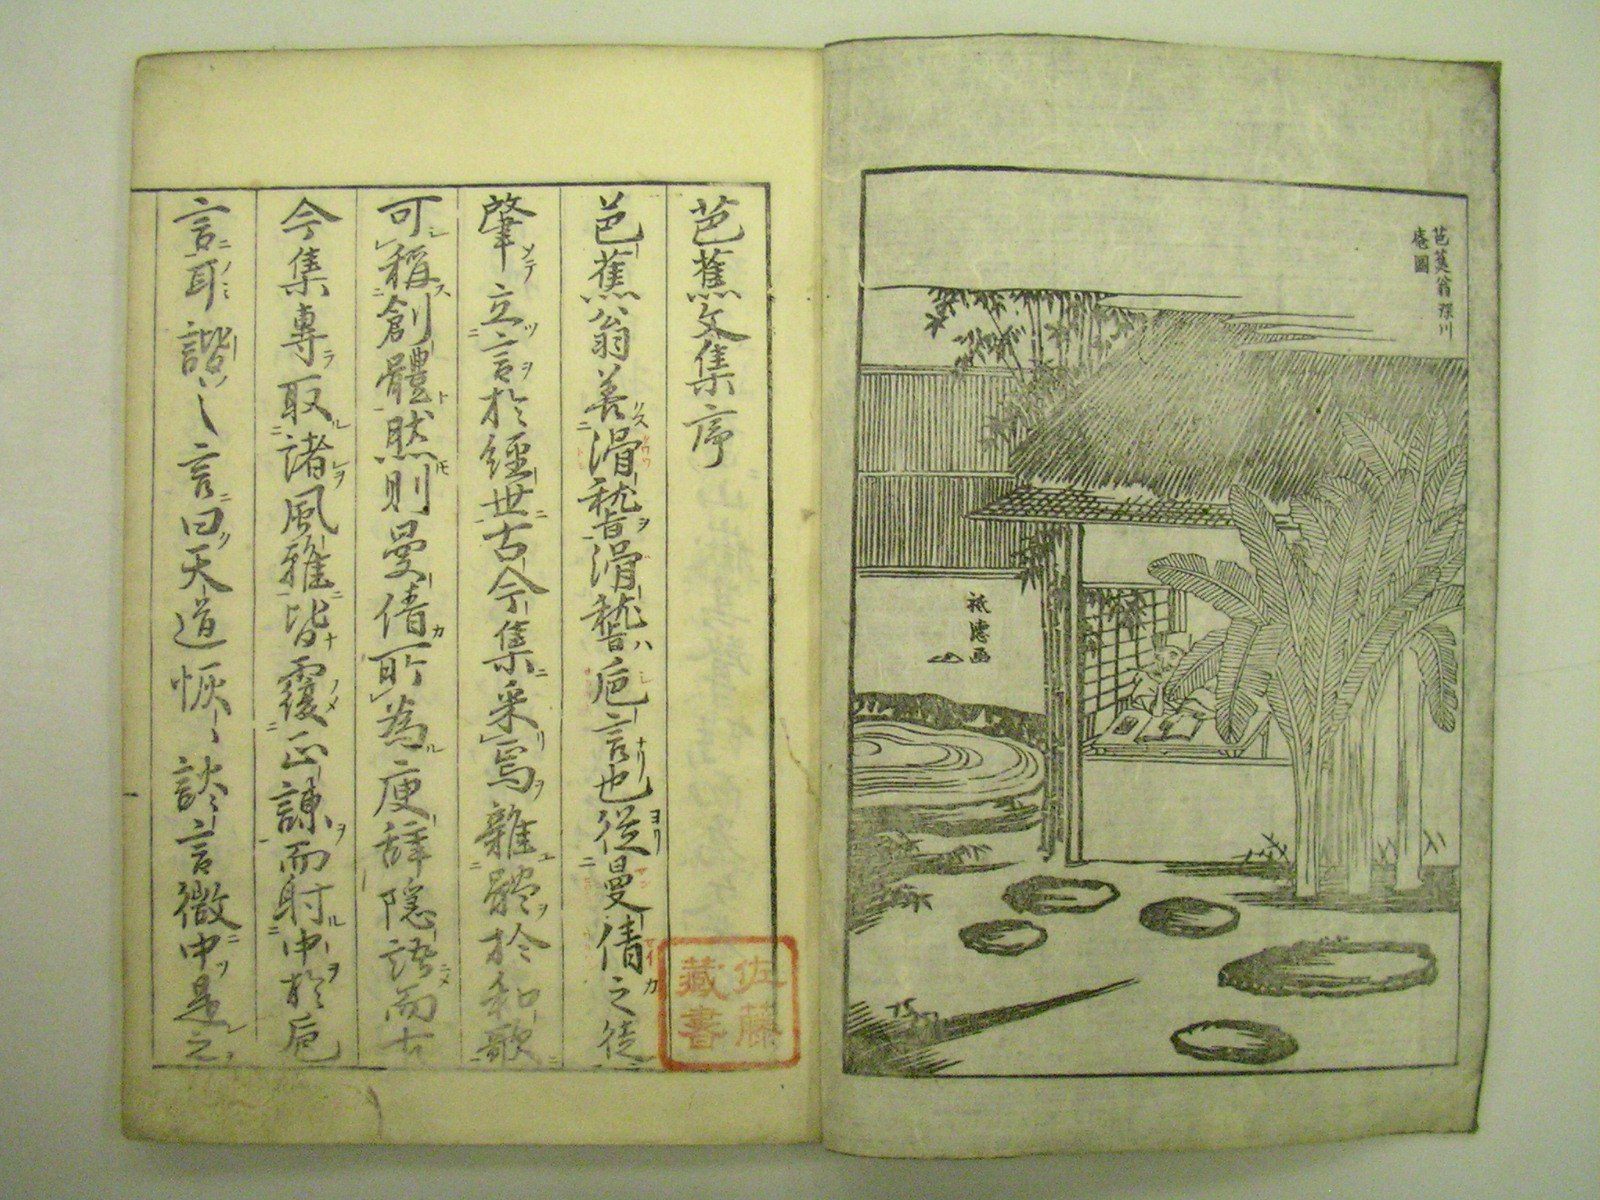 芭蕉翁深川
庵圖
祇德画
芭蕉文集序
芭蕉翁善滑稽滑稽ハ巵言也從曼倩之徒
肇立言於經世古今集采焉雜體於和歌
可稱創體然則曼倩所為廋辞隠語而古
今集專取諸風雅皆覆正諫而射中於巵
言耳諧之言曰天道恢〻談言微中是之
佐藤
藏書